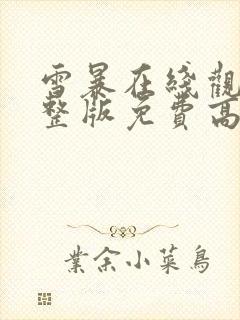 雪暴在綫觀
整版免費高
業余小菜鳥